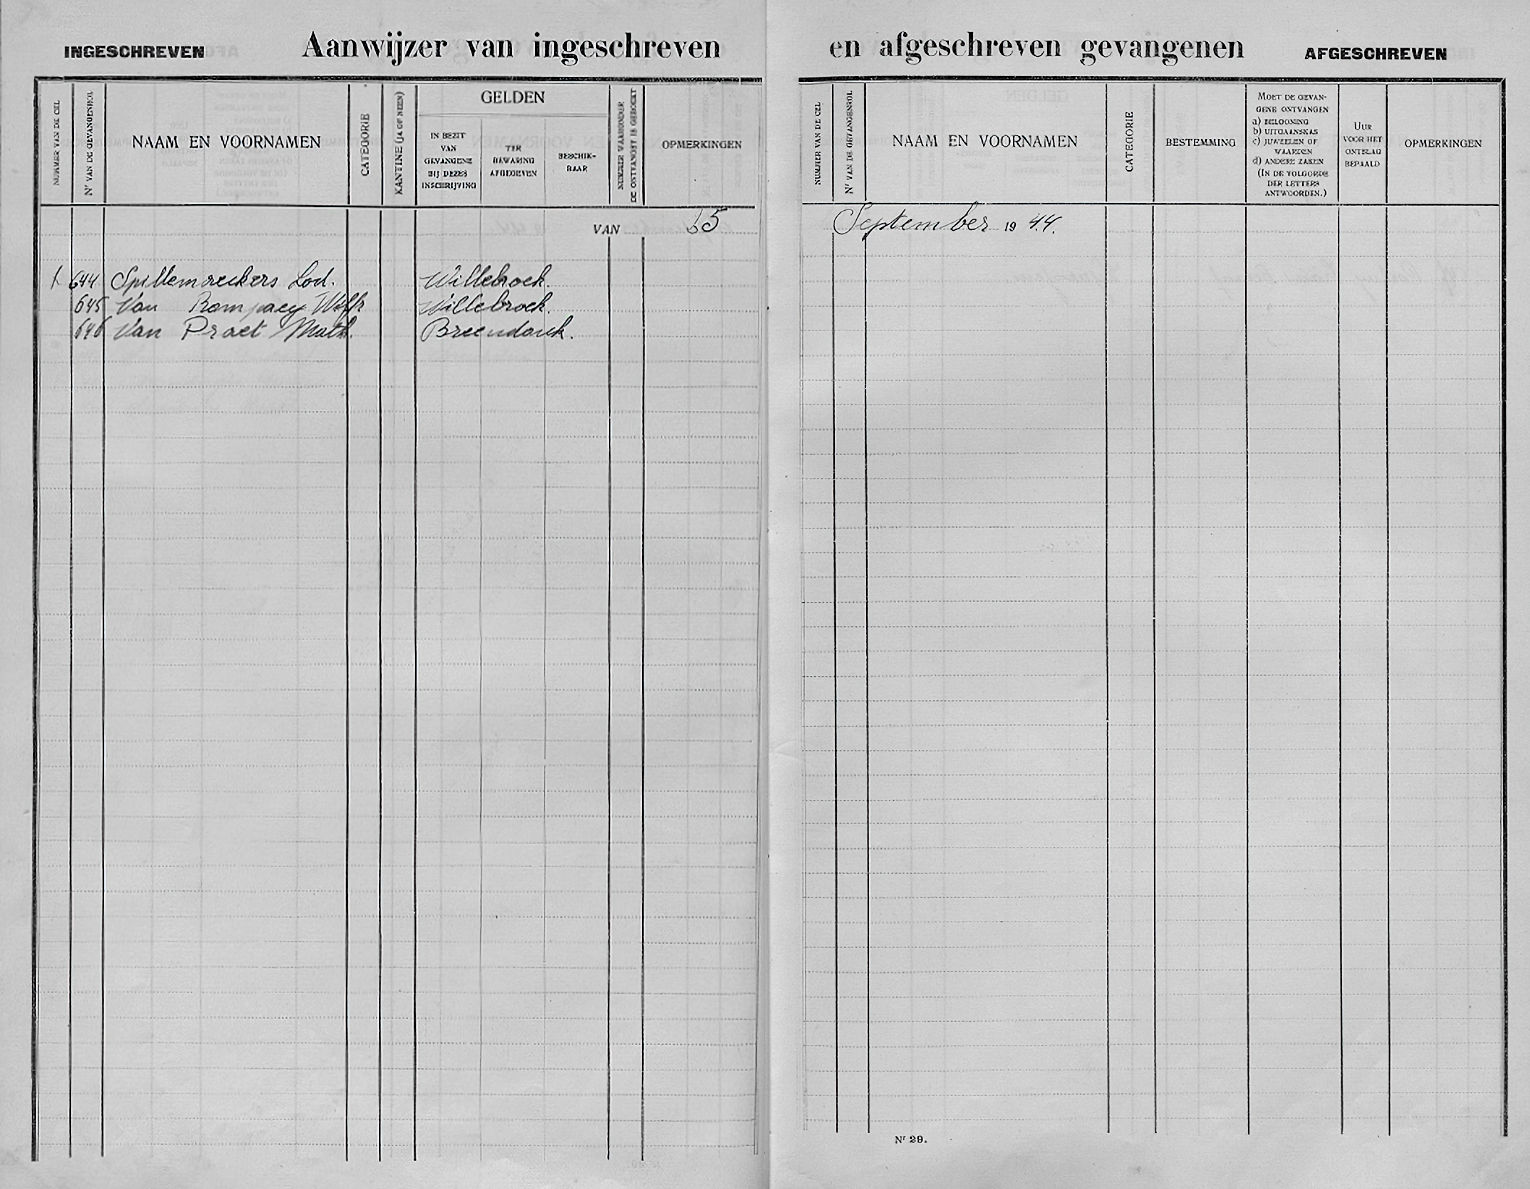 INGESCHREVEN
Aanwijzer van ingeschreven
NUMMER VAN DE CEL
Nr VAN DE GEVANGENROL
NAAM EN VOORNAMEN
CATEGORIE
KANTINE (JA OF NEEN)
GELDEN
IN BEZIT
VAN
GEVANGENE
BIJ DEZES
INSCHRIJVING
TER
BEWARING
AFGEGEVEN
BESCHIK-
BAAR
NUMMER WAARONDER
DE ONTVANGST IS GEBOEKT
OPMERKINGEN
VAN
644 Spillemaeckers Lod. Willebroek.
645 Van Rompaey Willebroek.
646 Van Praet Math. Breendonk.
en afgeschreven gevangenen
AFGESCHREVEN
NUMMER VAN DE CEL
Nr VAN DE GEVANGENROL
NAAM EN VOORNAMEN
CATEGORIE
BESTEMMING
MOET DE GEVAN-
GENE ONTVANGEN
a) BELOONING
b) UITGAANSKAS
c) JUWEELEN OF
WAARDEN
d) ANDERE ZAKEN
(IN DE VOLGORDE
DER LETTERS
ANTWOORDEN.)
UUR
VOOR HET
ONTSLAG
BEPAALD
OPMERKINGEN
September 1944.
Nr 29.